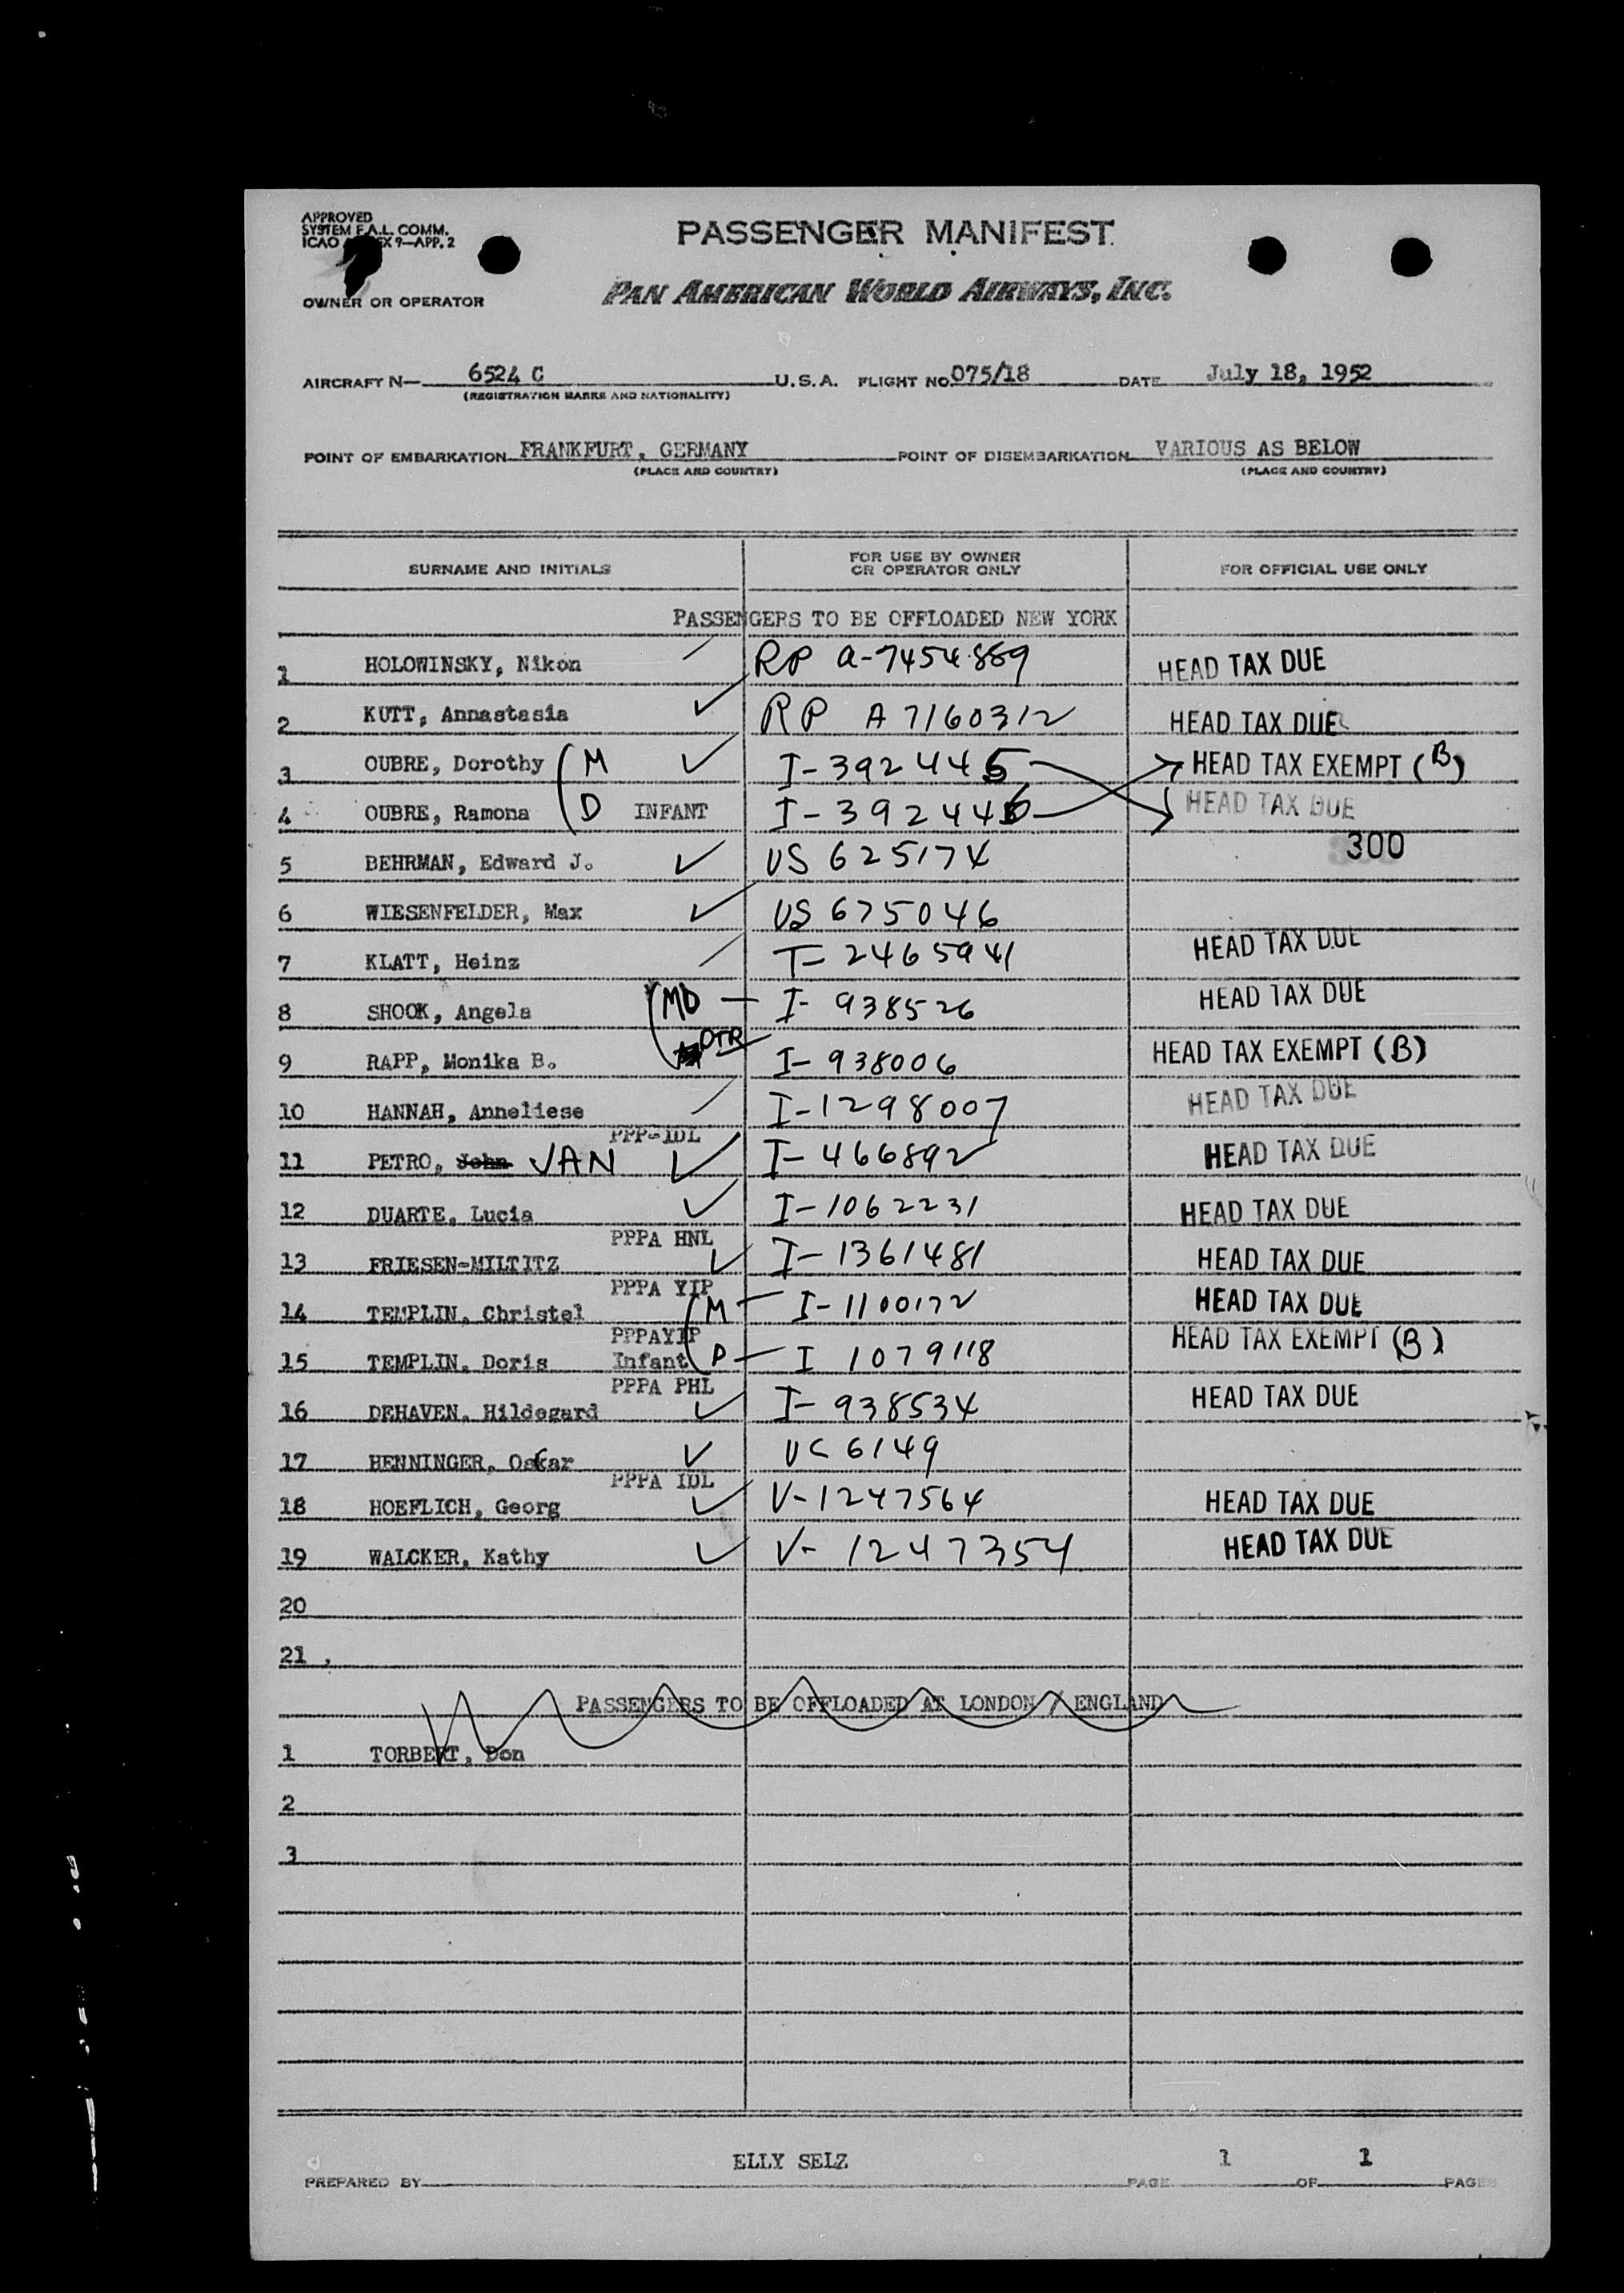 APPROVED
SYSTEM F.A.L. COMM.
ICAO EX 9—APP. 2
PASSENGER MANIFEST
OWNER OR OPERATOR
PAN AMERICAN WORLD AIRWAYS, INC.
AIRCRAFT N— 6524 C U.S.A. FLIGHT NO. 075/18 DATE July 18, 1952
(REGISTRATION MARKS AND NATIONALITY)
POINT OF EMBARKATION FRANKFURT, GERMANY POINT OF DISEMBARKATION VARIOUS AS BELOW
(PLACE AND COUNTRY) (PLACE AND COUNTRY)
SURNAME AND INITIALS FOR USE BY OWNER OR OPERATOR ONLY FOR OFFICIAL USE ONLY
PASSENGERS TO BE OFFLOADED NEW YORK
1 HOLOWINSKY, Nikon RP A-7454889 HEAD TAX DUE
2 KUTT, Annastasia RP A 7160312 HEAD TAX DUE
3 OUBRE, Dorothy M I-392445 HEAD TAX EXEMPT (B)
4 OUBRE, Ramona D INFANT I-392446 HEAD TAX DUE
300
5 BEHRMAN, Edward J. US 625174
6 WIESENFELDER, Max US 675046
7 KLATT, Heinz T-2465941 HEAD TAX DUE
8 SHOOK, Angela MD I-938526 HEAD TAX DUE
9 RAPP, Monika B. DTR I-938006 HEAD TAX EXEMPT (B)
10 HANNAH, Anneliese I-1298007 HEAD TAX DUE
PPP-IDL
11 PETRO, John JAN I-466892 HEAD TAX DUE
12 DUARTE, Lucia I-1062231 HEAD TAX DUE
PPPA HNL
13 FRIESEN-MILTITZ I-1361481 HEAD TAX DUE
PPPA YIP
14 TEMPLIN, Christel M I-1100172 HEAD TAX DUE
PPPAYIP
15 TEMPLIN, Doris Infant D I 1079118 HEAD TAX EXEMPT (B)
PPPA PHL
16 DEHAVEN, Hildegard I-938534 HEAD TAX DUE
17 HENNINGER, Oscar 6149
PPPA IDL
18 HOEFLICH, Georg V-1247564 HEAD TAX DUE
19 WALCKER, Kathy V-1247354 HEAD TAX DUE
20
21
PASSENGERS TO BE OFFLOADED AT LONDON / ENGLAND
1 TORBERT, Don
2
3
ELLY SELZ 1 1
PREPARED BY PAGE OF PAGES